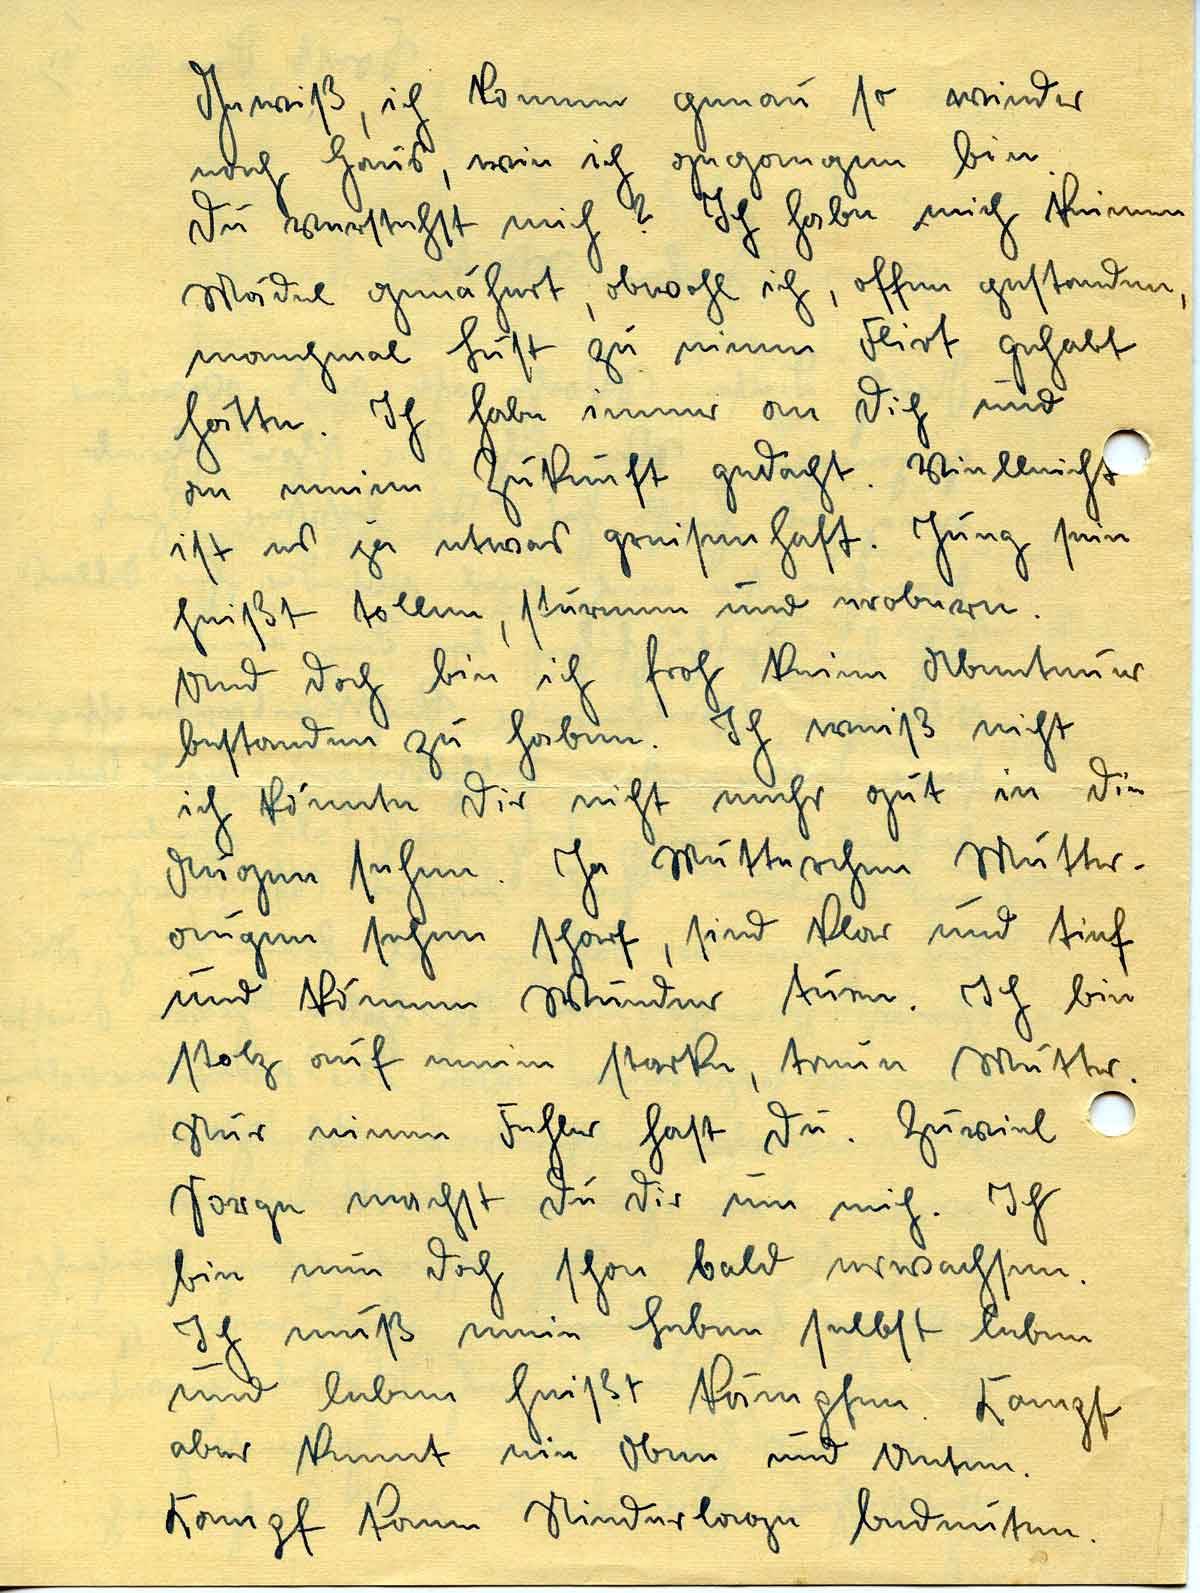 Gewiß, ich komme genau so wieder
nach Haus, wie ich gegangen bin.
Du verstehst mich? Ich habe mich keinem
Mädel genähert, obwohl ich, offen gestanden,
manchmal Lust zu einem Flirt gehabt
hätte. Ich habe immer an Dich und
an meine Zukunft gedacht. Vielleicht
ist es ja etwas greisenhaft. Jung sein
heißt tollen, stürmen und erobern.
Und doch bin ich froh keine Abenteuer
bestanden zu haben. Ich weiß nicht
ich könnte Dir nicht mehr gut in die
Augen sehen. Ja Mutterchen Mutter-
augen sehen scharf, sind klar und tief
und können Wunder tuen. Ich bin
stolz auf meine starke, treue Mutter.
Nur einen Fehler hast Du. Zuviel
Sorge machst Du Dir um mich. Ich
bin nun doch schon bald erwachsen.
Ich muß mein Leben selbst leben
und leben heißt kämpfen. Kampf
aber kennt ein Oben und Unten.
Kampf kann Niederlage bedeuten.